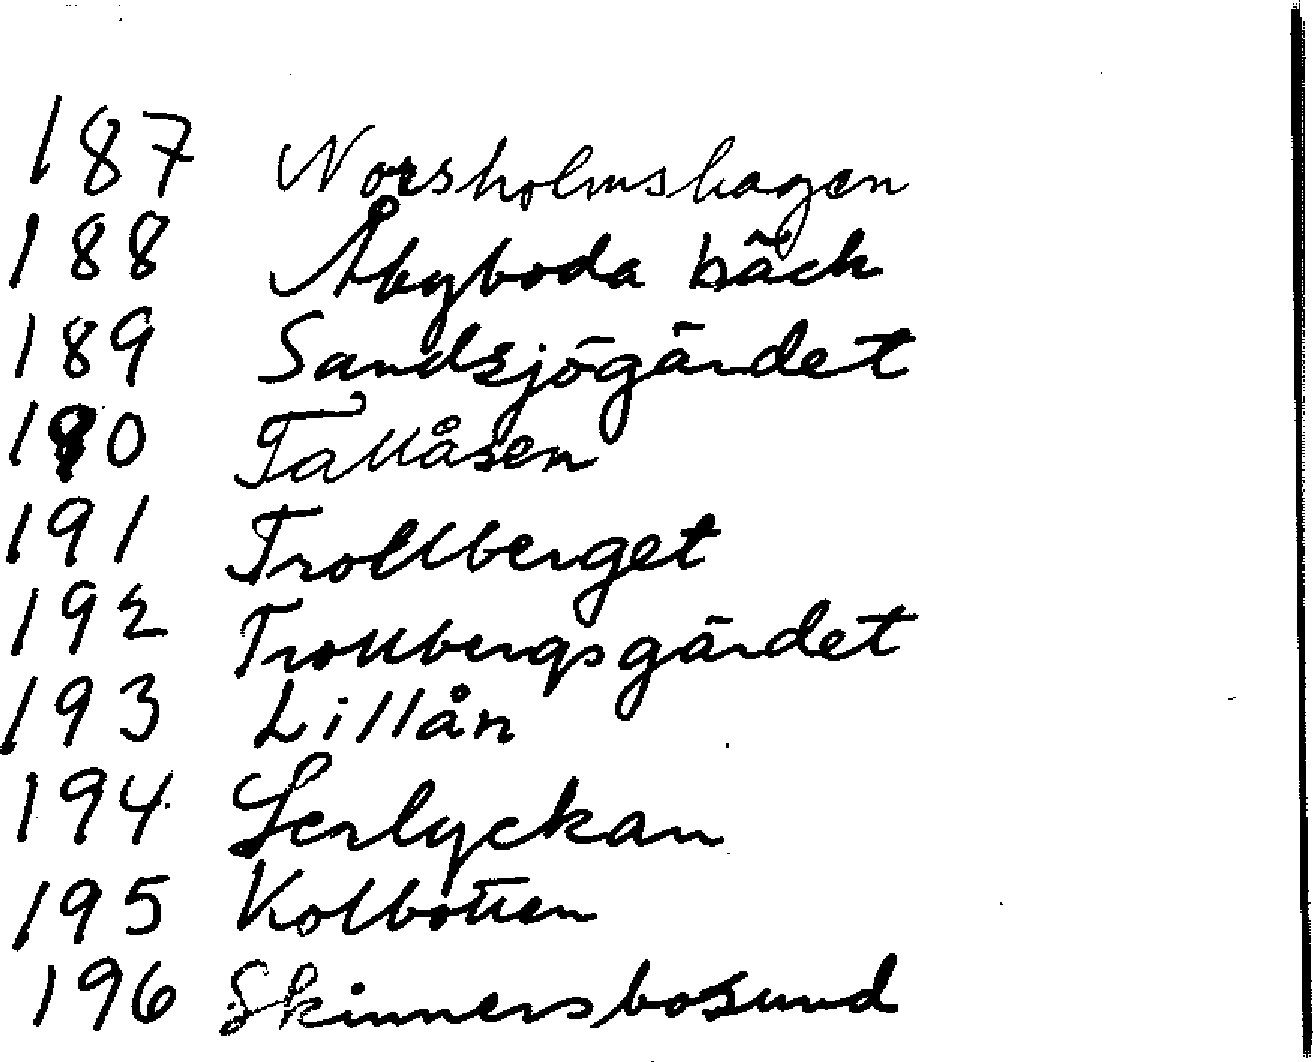 187 Norsholmshagen
188 Åbyboda bäck
189 Sandsjögärdet
190 Tallåsen
191 Trollberget
192 Trollbergsgärdet
193 Lillån
194 Lerlyckan
195 Kolbotten
196 Skinnersbosund